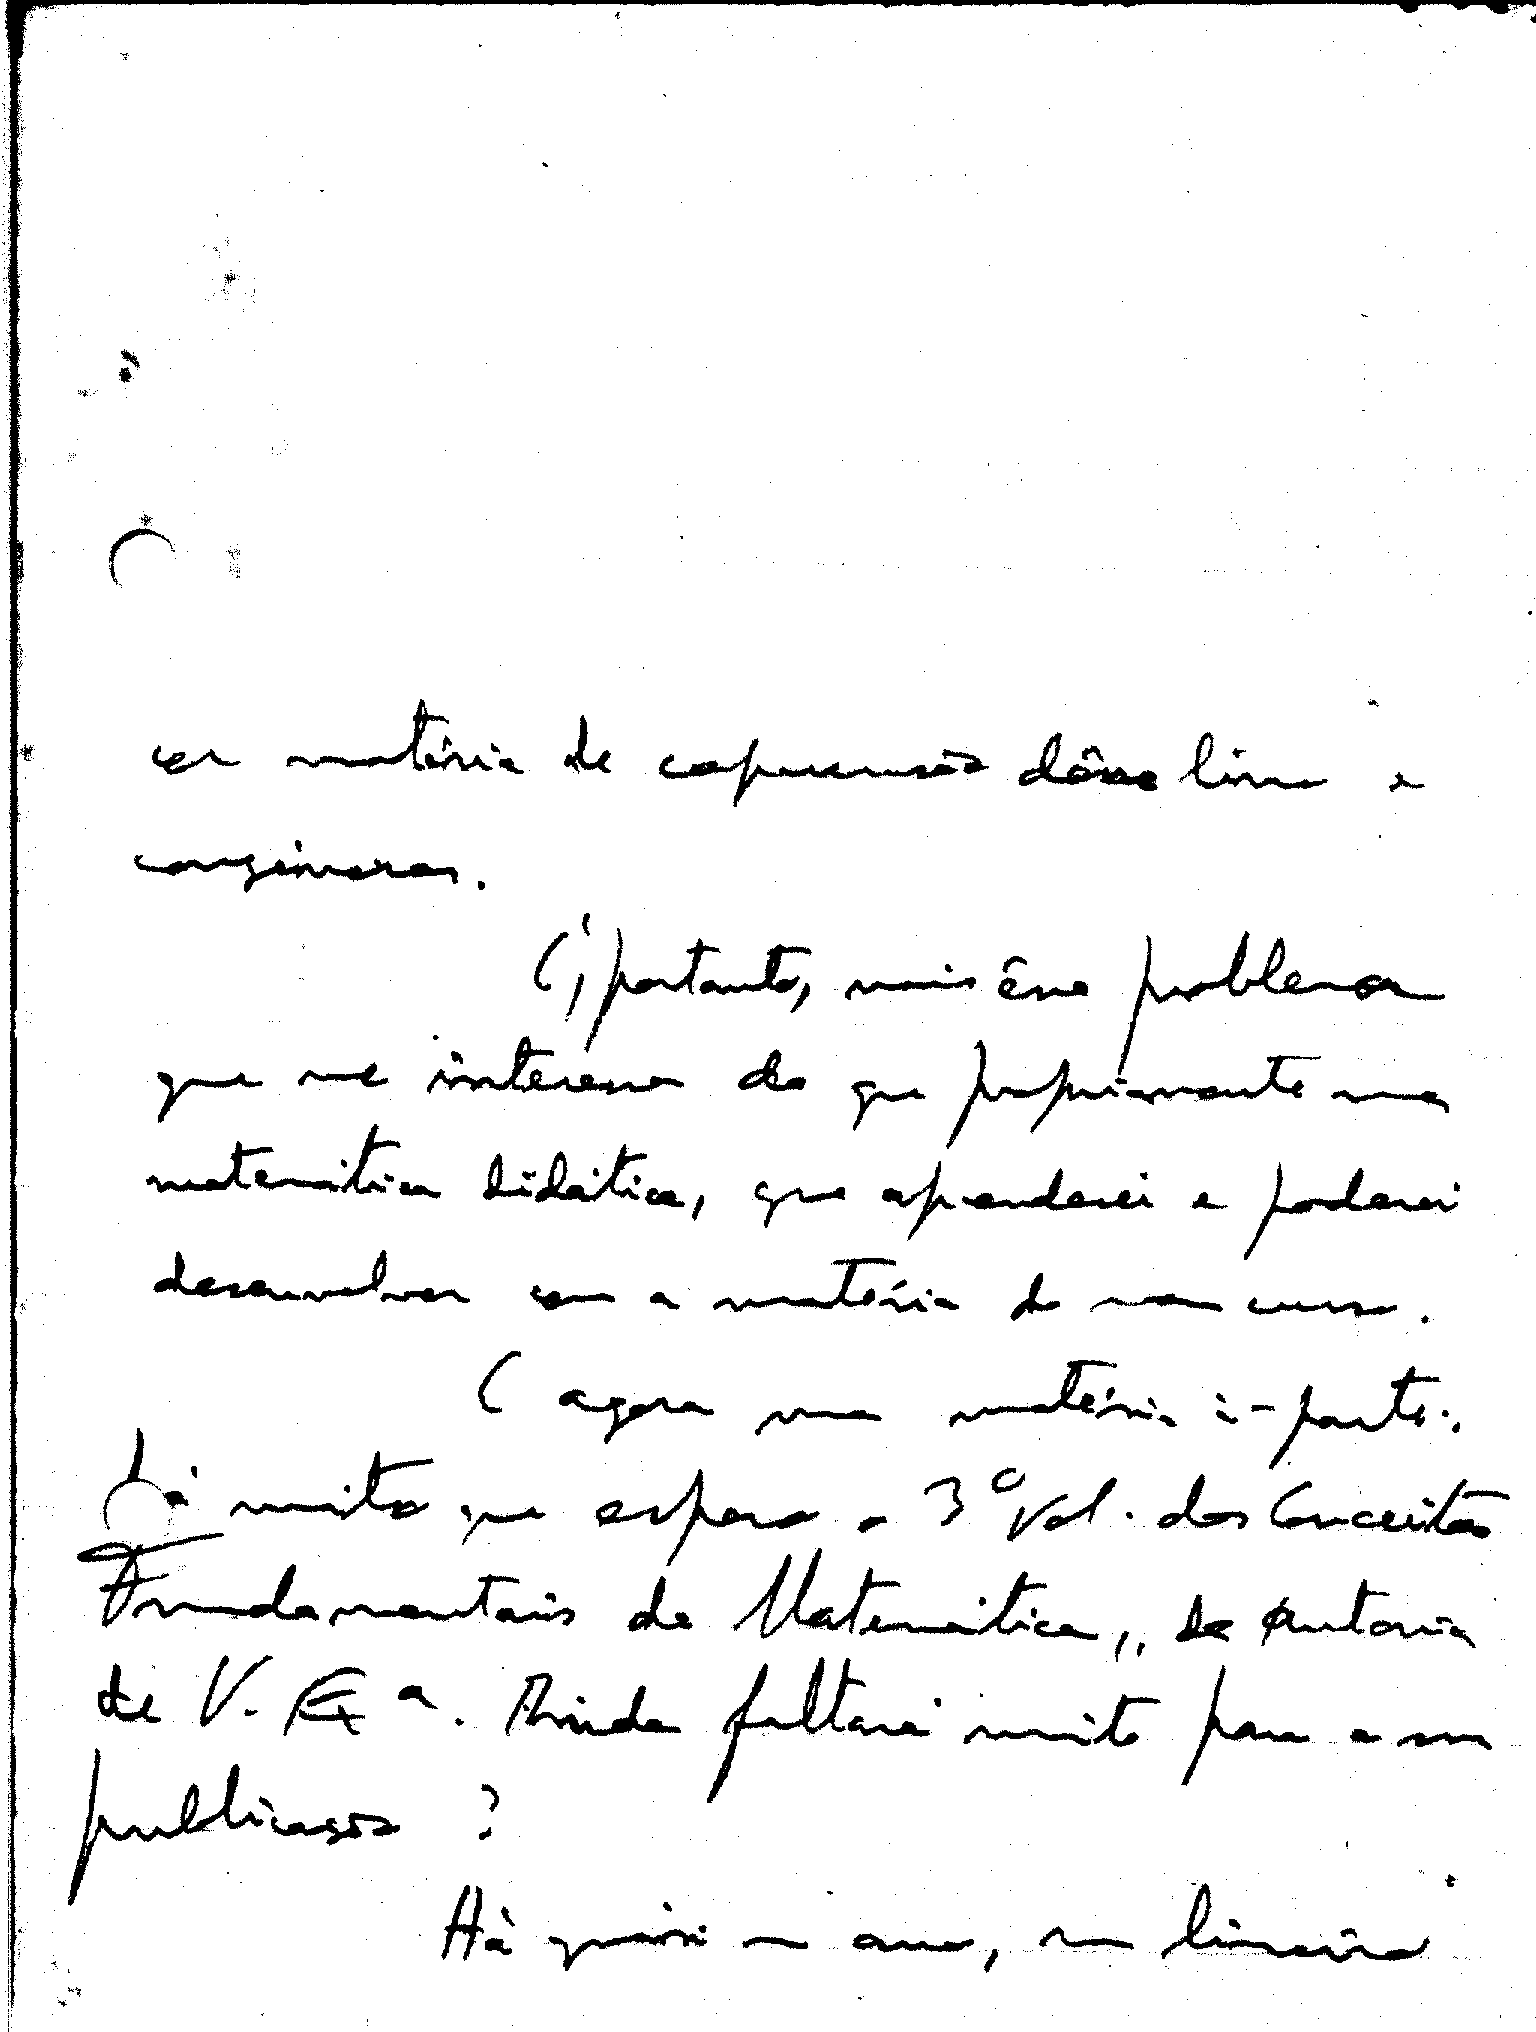 ser matéria de compreensão dêsse livro e
congéneres.
É, portanto, mais êsse problema
que me interessa do que propriamente uma
matemática didática, que aprenderei e poderei
desenvolver com a matéria do meu curso.
E agora uma matéria à-parte:
há muito que espero o 3º Vol. dos Conceitos
Fundamentais da Matemática,, da autoria
de V. Exª. Ainda faltará muito para a sua
publicação?
Há quási um ano, um livreiro